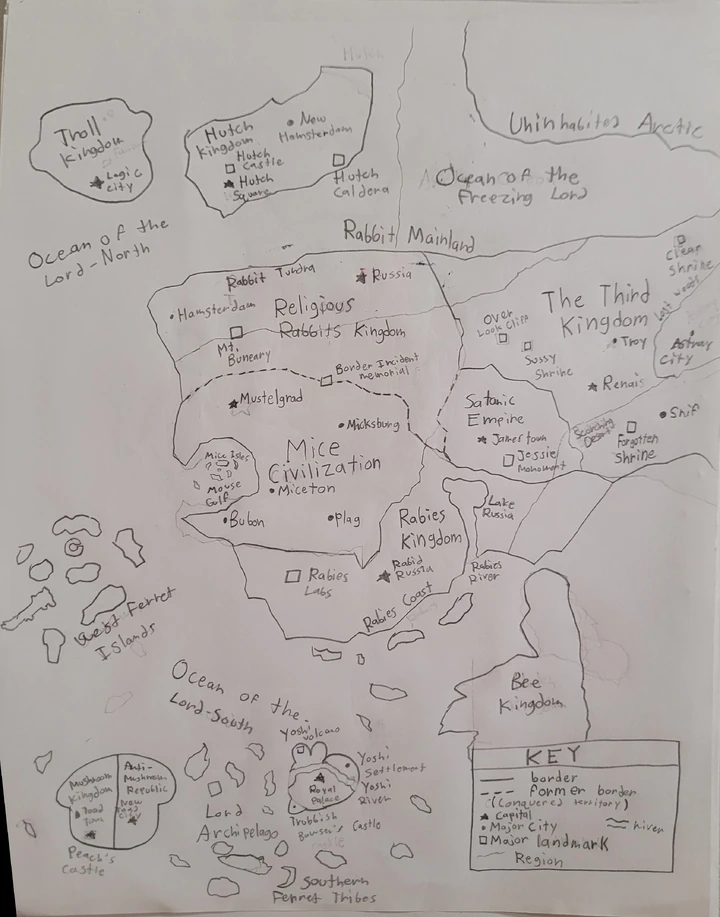 Hutch
Troll
Kingdom
Logic
City
Hutch
Kingdom
New
Hamsterdam
Hutch
Castle
Hutch
Square
Hutch
Caldera
Uninhabited Arctic
Ocean of the
Freezing Lord
Ocean of the
Lord-North
Rabbit Mainland
Rabbit Tundra
Russia
Hamsterdam
Religious
Rabbits Kingdom
Mt.
Buneary
Border Incident
memorial
Clear
Shrine
The Third
Kingdom
Over
Look Cliff
Sussy
Shrine
Troy
Astray
City
Renais
Snif
Scorching
Desert
Forgotten
Shrine
Satanic
Empire
Jamestown
Jessie
Monument
Mustelgrad
Micksburg
Mice
Civilization
Mice Isles
Mouse
Gulf
Miceton
Bubon
Plag
Rabies
Kingdom
Lake
Russia
Rabid
Russia
Rabies
Labs
Rabies
River
Rabies Coast
West Ferret
Islands
Ocean of the
Lord-South
Bee
Kingdom
Yoshi
Volcano
Yoshi
Settlement
Yoshi
River
Royal
Palace
Trubbish
Bowser's Castle
Mushroom
Kingdom
Toad
Town
Anti-
Mushroom
Republic
New
Toad
City
Peach's
Castle
Lord
Archipelago
Southern
Ferret Tribes
KEY
border
former border
(Conquered territory)
Capital
Major City
river
Major landmark
Region